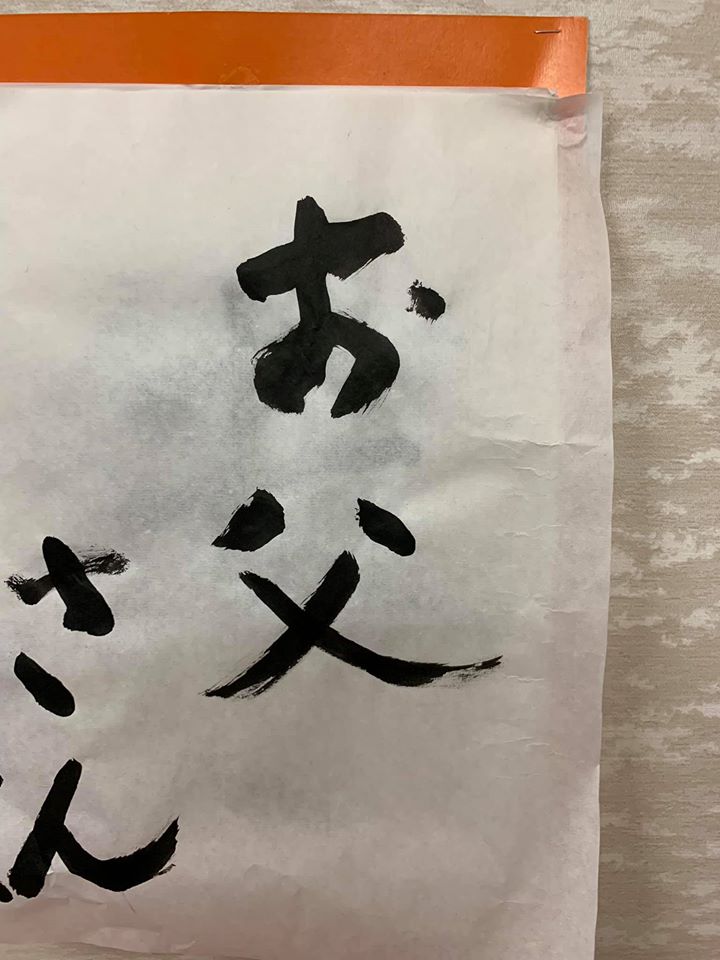 お父
さん